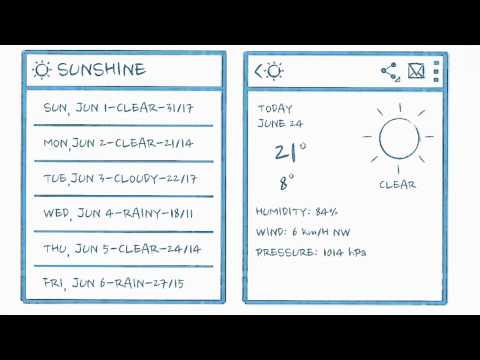 SUNSHINE
SUN, JUN 1-CLEAR-31/17
MON, JUN 2-CLEAR-21/14
TUE, JUN 3-CLOUDY-22/17
WED, JUN 4-RAINY-18/11
THU, JUN 5-CLEAR-24/14
FRI, JUN 6-RAIN-27/15
TODAY
JUNE 24
21°
8°
CLEAR
HUMIDITY: 84%
WIND: 6 KM/H NW
PRESSURE: 1014 hPa